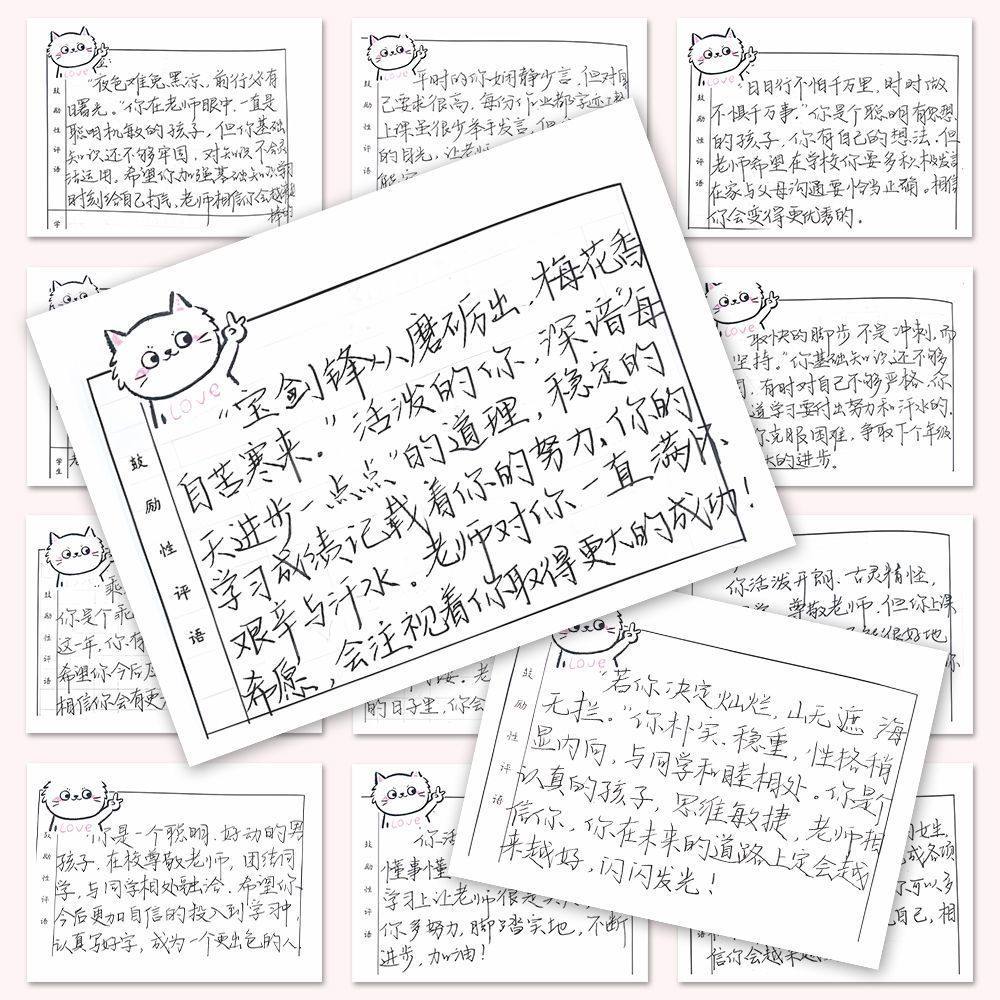 Love
鼓励性评语
"夜色难免黑凉,前行必有
曙光。"你在老师眼中,一直是
聪明机敏的孩子,但你基础
知识还不够牢固,对知识不会灵
活运用。希望你加强基础知识学习
时刻给自己打气,老师相信你会越来越
棒的
学
Love
鼓励性评语
平时的你娴静少言,但对自
己要求很高,每份作业都字迹
上课虽很少举手发言,但
的目光,让老师
Love
鼓励性评语
"日日行不怕千万里,时时做
不惧千万事。"你是个聪明有思想
的孩子,你有自己的想法,但
老师希望在学校你要多积极发言
在家与父母沟通要恰当正确。相信
你会变得更优秀的。
Love
鼓励性评语
"宝剑锋从磨砺出,梅花香
自苦寒来。"活泼的你,深谙"每
天进步一点点"的道理,稳定的
学习成绩记载着你的努力,你的
艰辛与汗水。老师对你一直满怀
希愿,会注视着你取得更大的成功!
学生
Love
取快的脚步不是冲刺,而
坚持。"你基础知识还不够
有时对自己不够严格,你
道学习要付出努力和汗水的,
你克服困难,争取下个年级
大的进步。
鼓励性评语
"乖
你是个乖
这一年,你有
希望你今后
相信你会有更
的日子里,你会
你活泼开朗、古灵精怪,
尊敬老师,但你上课
很好地
Love
鼓励性评语
"若你决定灿烂,山无遮,海
无拦。"你朴实、稳重,性格稍
显内向,与同学和睦相处。你是个
认真的孩子,思维敏捷,老师相
信你,你在未来的道路上定会越
来越好,闪闪发光!
Love
鼓励性评语
你是一个聪明、好动的男
孩子,在校尊敬老师,团结同
学,与同学相处融洽,希望你
今后更加自信的投入到学习中,
认真写好字,成为一个更出色的人
Love
鼓励性评语
你活
懂事懂
学习上让老师很是
你多努力,脚踏实地,不断
进步,加油!
女生,
成各项
你可以多
自己,相
信你会越来越